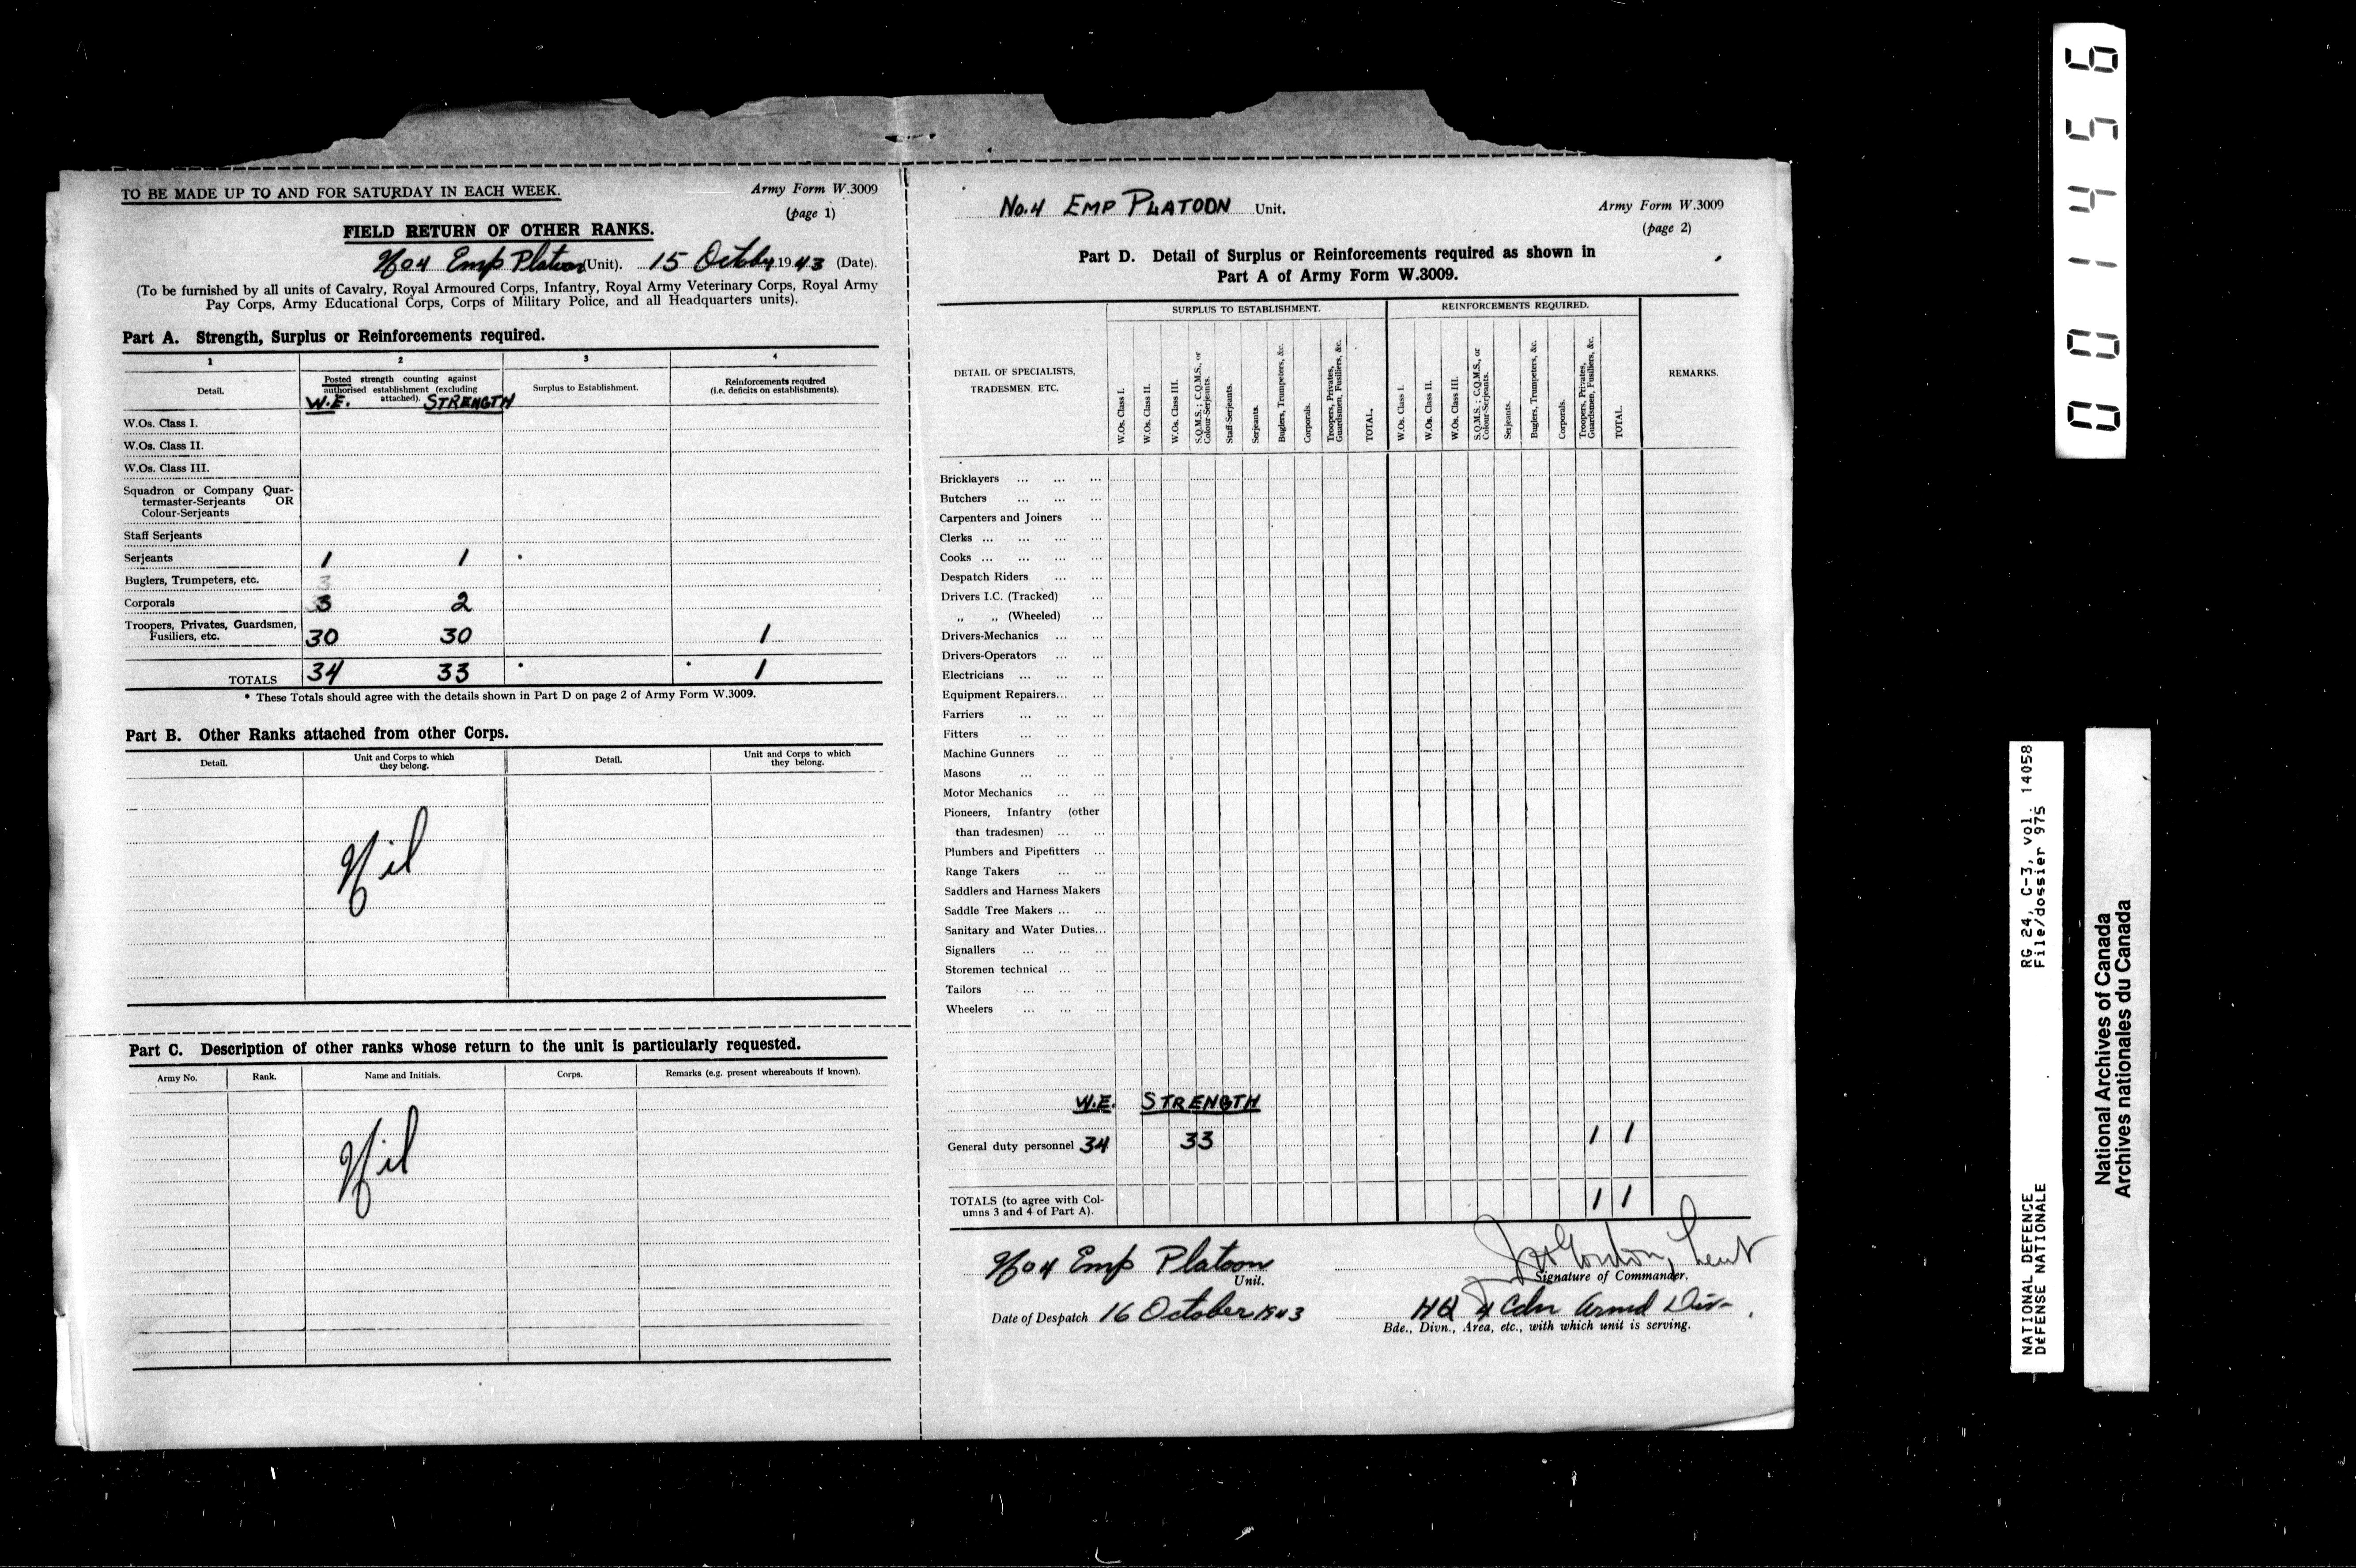 TO BE MADE UP TO AND FOR SATURDAY IN EACH WEEK.
Army Form W.3009
(page 1)
FIELD RETURN OF OTHER RANKS.
No 4 Emp Platoon (Unit). 15 October 1943 (Date).
(To be furnished by all units of Cavalry, Royal Armoured Corps, Infantry, Royal Army Veterinary Corps, Royal Army
Pay Corps, Army Educational Corps, Corps of Military Police, and all Headquarters units).
Part A. Strength, Surplus or Reinforcements required.
1 2 3 4
Detail.
Posted strength counting against
authorised establishment (excluding
attached).
W.E. STRENGTH
Surplus to Establishment.
Reinforcements required
(i.e. deficits on establishments).
W.Os. Class I.
W.Os. Class II.
W.Os. Class III.
Squadron or Company Quar-
termaster-Serjeants OR
Colour-Serjeants
Staff Serjeants
Serjeants 1 1
Buglers, Trumpeters, etc. 3
Corporals 3 2
Troopers, Privates, Guardsmen,
Fusiliers, etc. 30 30 1
TOTALS 34 33 * * 1
* These Totals should agree with the details shown in Part D on page 2 of Army Form W.3009.
Part B. Other Ranks attached from other Corps.
Detail.
Unit and Corps to which
they belong.
Detail.
Unit and Corps to which
they belong.
Nil
Part C. Description of other ranks whose return to the unit is particularly requested.
Army No. Rank. Name and Initials. Corps. Remarks (e.g. present whereabouts if known).
Nil
No.4 EMP PLATOON Unit.
Army Form W.3009
(page 2)
Part D. Detail of Surplus or Reinforcements required as shown in
Part A of Army Form W.3009.
DETAIL OF SPECIALISTS,
TRADESMEN, ETC.
SURPLUS TO ESTABLISHMENT.
W.Os. Class I.
W.Os. Class II.
W.Os. Class III.
S.Q.M.S.; C.Q.M.S., or
Colour-Serjeants.
Staff-Serjeants.
Serjeants.
Buglers, Trumpeters, &c.
Corporals.
Troopers, Privates,
Guardsmen, Fusiliers, &c.
TOTAL.
REINFORCEMENTS REQUIRED.
W.Os. Class I.
W.Os. Class II.
W.Os. Class III.
S.Q.M.S.; C.Q.M.S., or
Colour-Serjeants.
Serjeants.
Buglers, Trumpeters, &c.
Corporals.
Troopers, Privates,
Guardsmen, Fusiliers, &c.
TOTAL.
REMARKS.
Bricklayers ... ... ...
Butchers ... ... ...
Carpenters and Joiners ...
Clerks ... ... ... ...
Cooks ... ... ... ...
Despatch Riders ... ...
Drivers I.C. (Tracked) ...
„ „ (Wheeled) ...
Drivers-Mechanics ... ...
Drivers-Operators ... ...
Electricians ... ... ...
Equipment Repairers... ...
Farriers ... ... ...
Fitters ... ... ...
Machine Gunners ... ...
Masons ... ... ...
Motor Mechanics ... ...
Pioneers, Infantry (other
than tradesmen) ... ...
Plumbers and Pipefitters ...
Range Takers ... ...
Saddlers and Harness Makers
Saddle Tree Makers ... ...
Sanitary and Water Duties...
Signallers ... ... ...
Storemen technical ... ...
Tailors ... ... ...
Wheelers ... ... ...
W.E. STRENGTH
General duty personnel 34 33 1 1
TOTALS (to agree with Col-
umns 3 and 4 of Part A). 1 1
No 4 Emp Platoon
Unit.
Gordon, Lieut
Signature of Commander.
Date of Despatch 16 October 1943
HQ 4 Cdn Armd Div
Bde., Divn., Area, etc., with which unit is serving.
001456
NATIONAL DEFENCE RG 24, C-3, vol. 14058
DÉFENSE NATIONALE File/dossier 975
National Archives of Canada
Archives nationales du Canada